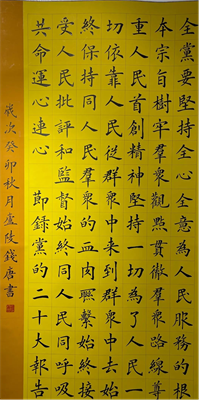 全黨要堅持全心全意為人民服務的根
本宗旨樹牢羣衆觀點貫徹羣衆路線尊
重人民首創精神堅持一切為了人民一
切依靠人民從群衆中來到群衆中去始
終保持同人民羣衆的血肉聯繫始終接
受人民批評和監督始終同人民同呼吸
共命運心連心 節録黨的二十大報告
歲次癸卯秋月盧陵錢唐書